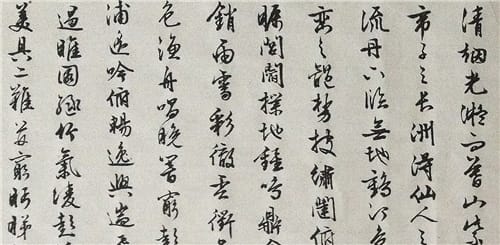 清烟光凝而暮山紫
帝子之長洲得仙人之
流丹下臨無地鶴汀鳧
巒之體勢披繡闥俯
矚閭閻撲地鍾鳴鼎
銷雨霽彩徹雲衢
色漁舟唱晚響窮彭
浦遥吟俯暢逸興遄
遏睢園緑竹氣凌彭
美具二難并窮眄睇